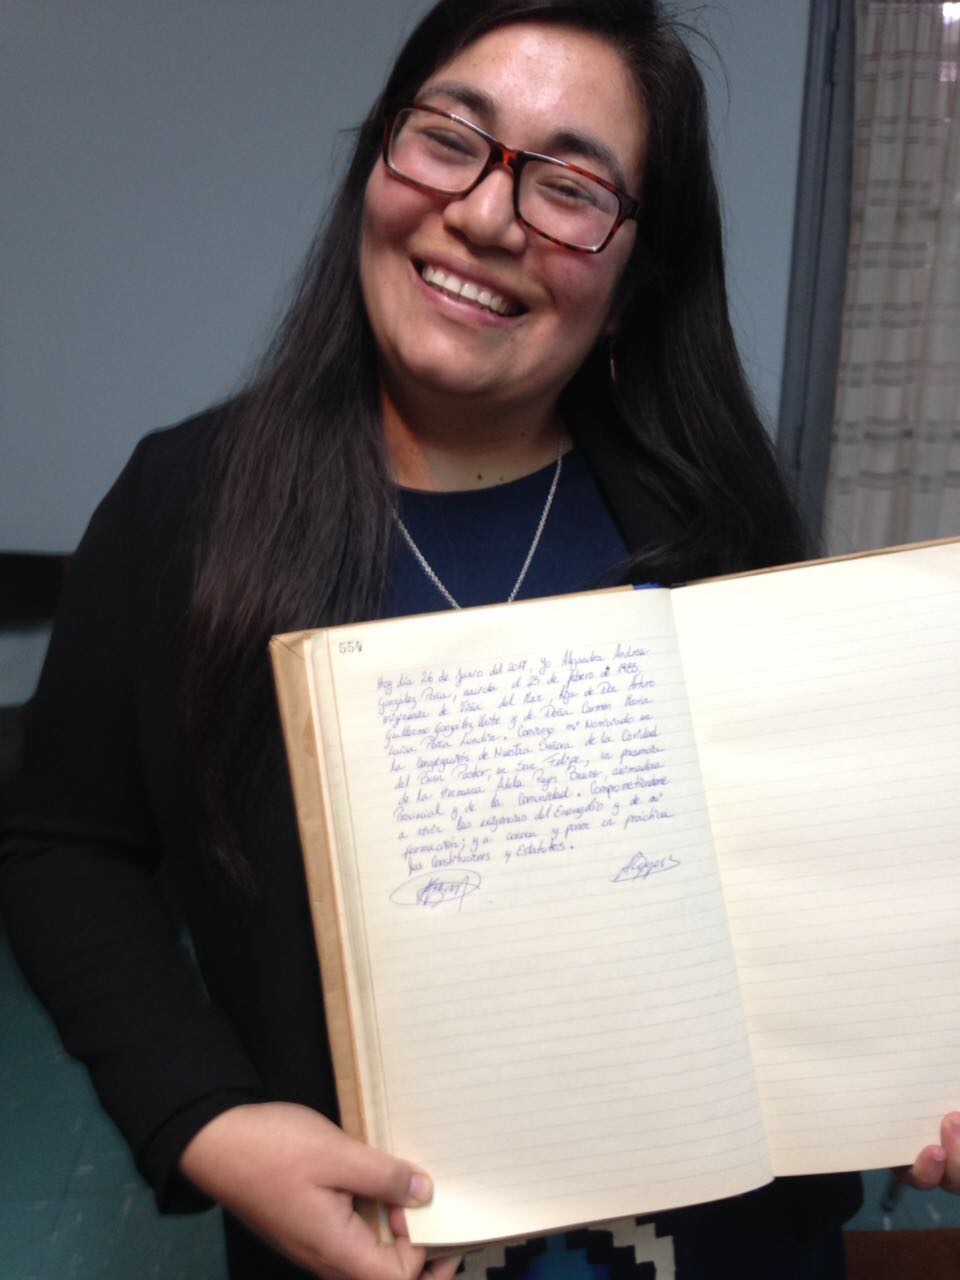 554
Hoy día 26 de Junio del 2017, yo Alejandra Andrea
González Peña, nacida el 25 de febrero de 1985,
originaria de Viña del Mar, hija de Don Arturo
Guillermo González Uribe y de Doña Carmen María
Luisa Peña Lundin. Comienzo mi Noviciado en
la Congregación de Nuestra Señora de la Caridad
del Buen Pastor, en San Felipe, en presencia
de la Hermana Adela Reyes Bravo, animadora
Provincial y de la Comunidad. Comprometiéndome
a vivir las exigencias del Evangelio y de mi
formación; y a conocer y poner en práctica
las Constituciones y Estatutos.